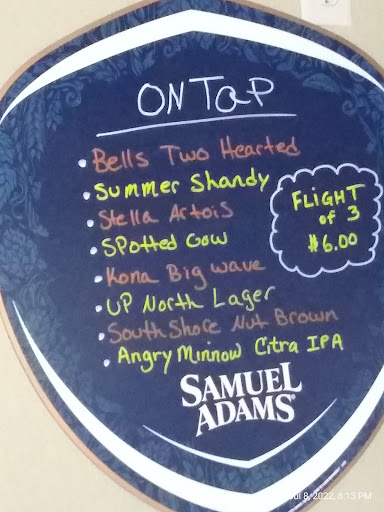 ON TaP
• Bells Two Hearted
• Summer Shandy
• Stella Artois
• Spotted Cow
• Kona Big wave
• UP North Lager
• South Shore Nut Brown
• Angry Minnow Citra IPA
FLIGHT
of 3
$6.00
SAMUEL
ADAMS®
Jul 8, 2022, 8:13 PM